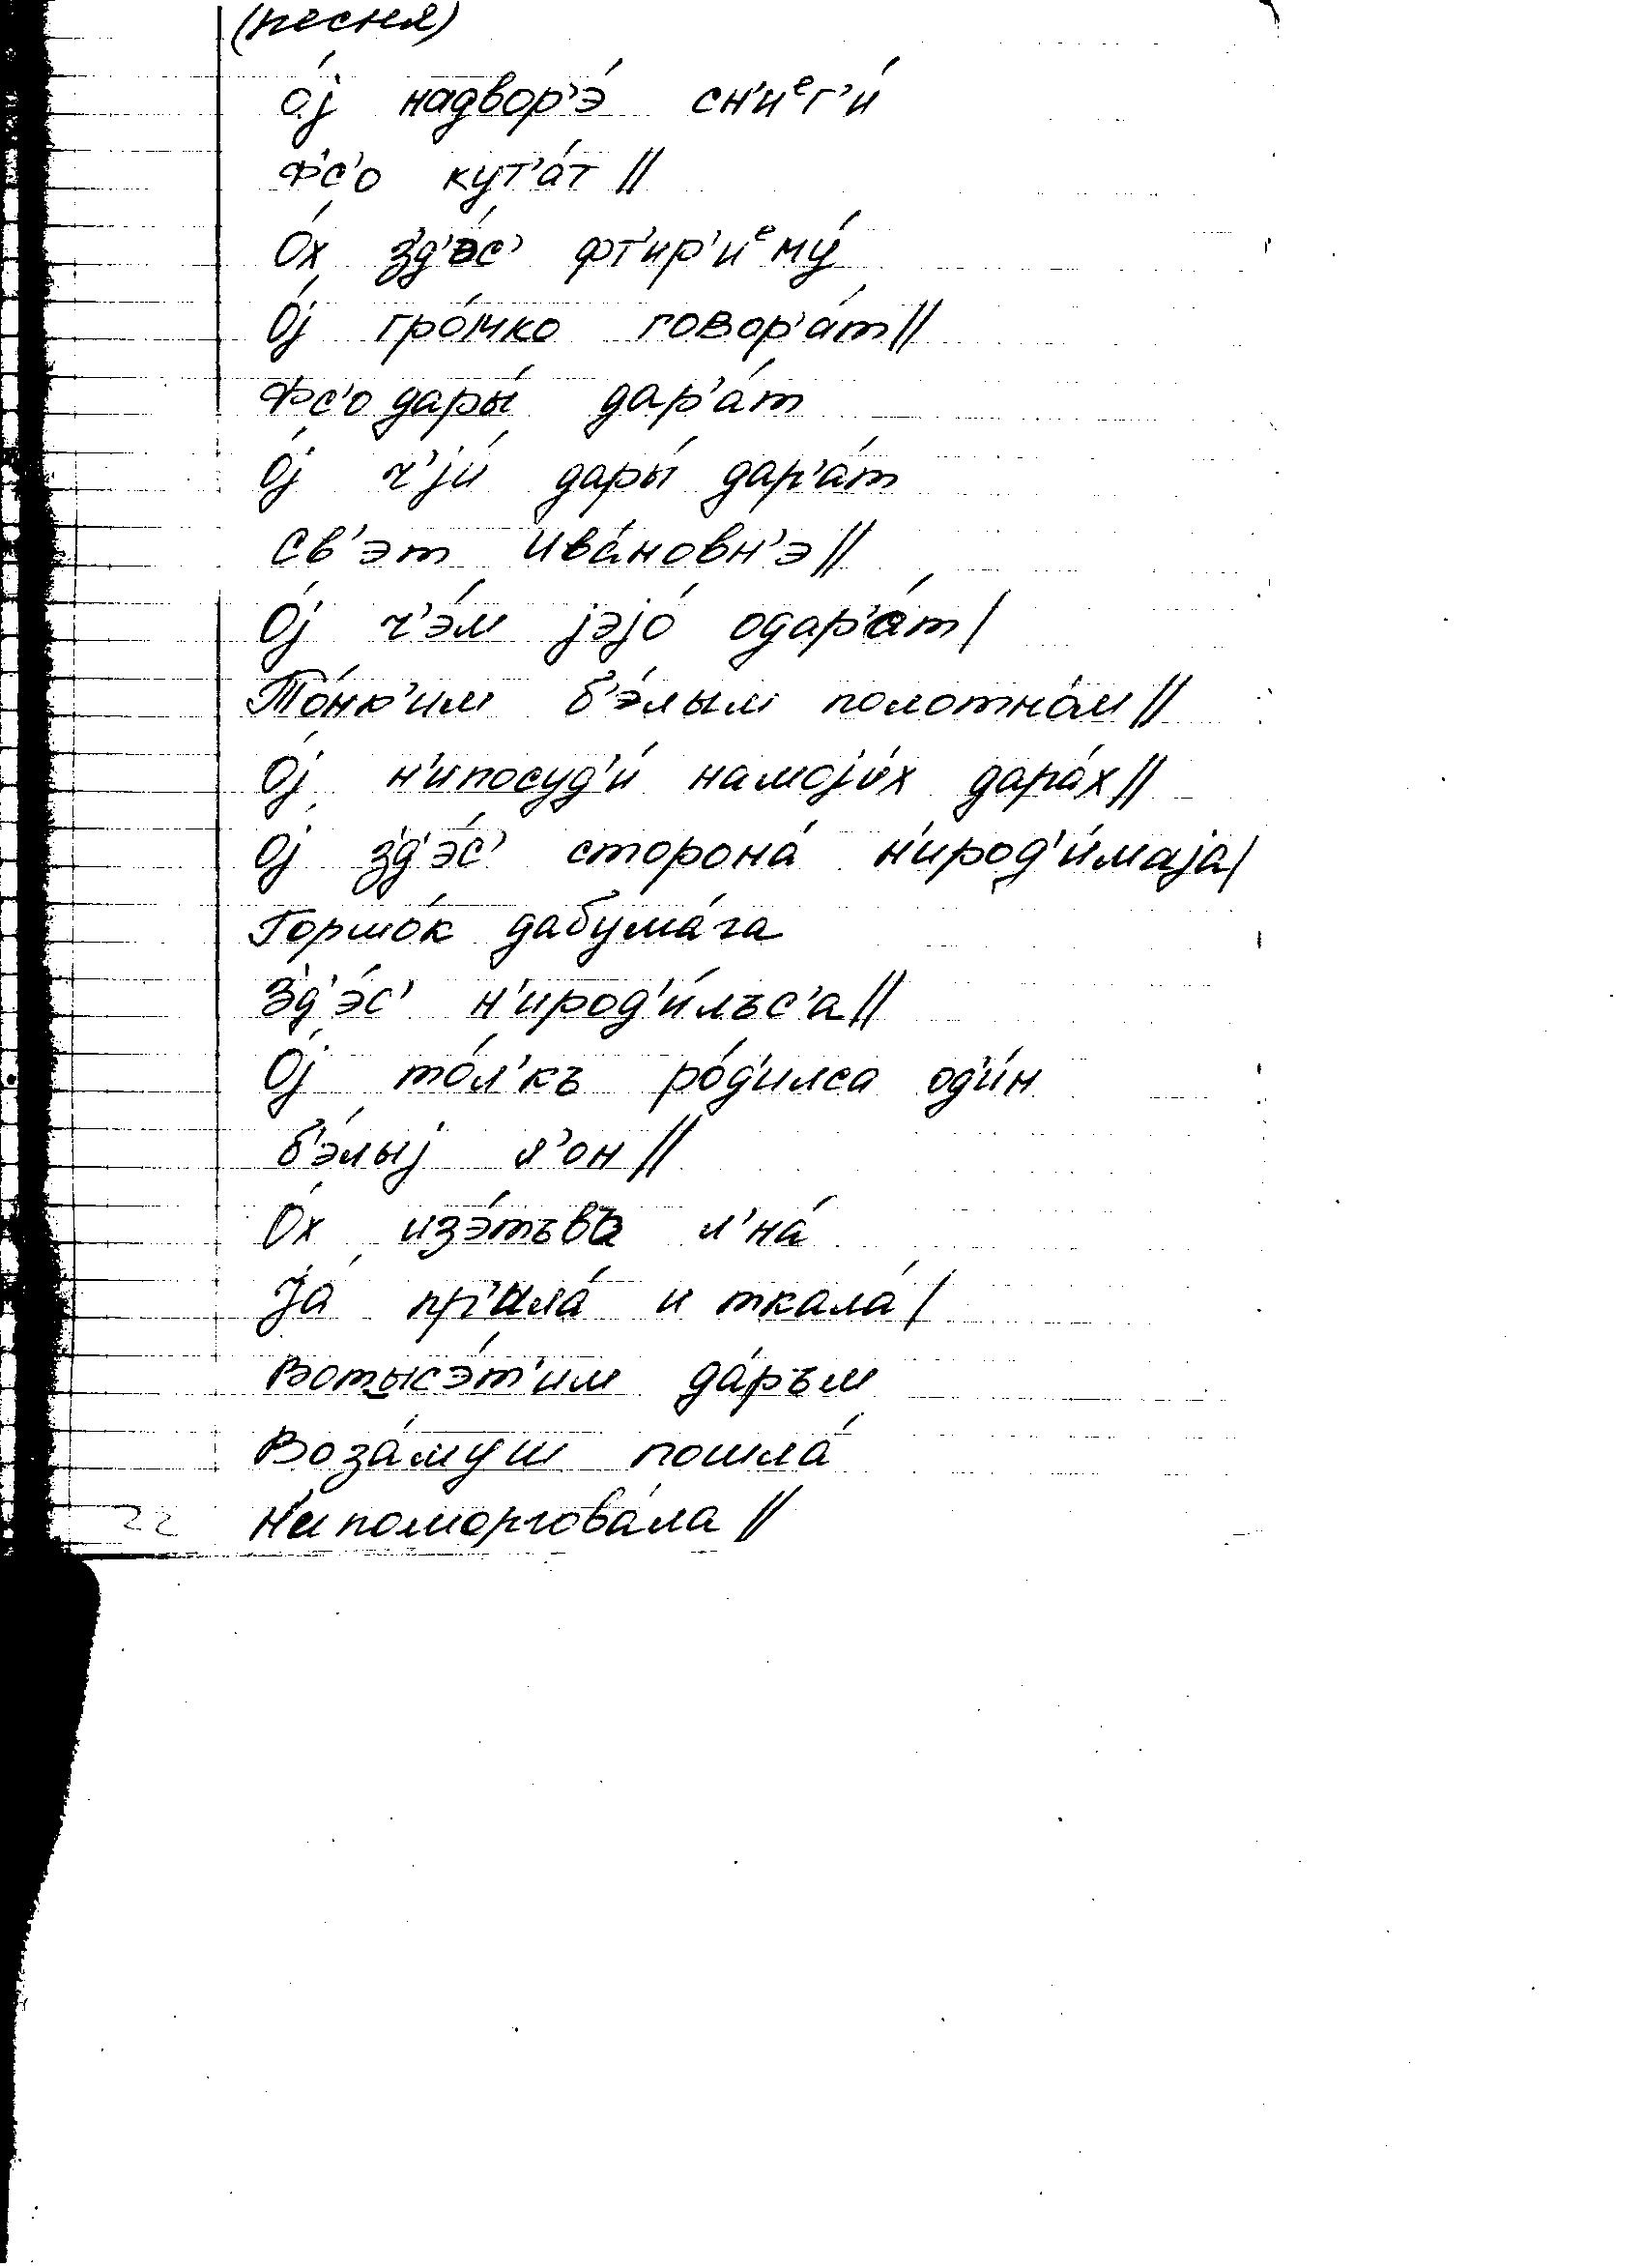 (песня)
о́j надвор'э́ сн'иᵉг'и́
Фс'о кут'а́т //
О́х з'д'э́с' фт'ир'иᵉму́
О́j гро́мко говор'а́т//
Фс'о дары́ дар'а́т
О́j ч'jи́ дары́ дар'а́т
Св'эт Ива́новн'э//
О́j ч'э́м jэjо́ одар'а́т/
То́нк'им б'э́лым полотно́м//
О́j н'ипосуд'и́ намоjи́х дара́х//
О́j з'д'э́с' сторона́ н'ирод'и́маjа/
Горшо́к дабума́га
З'д'э́с' н'ирод'и́лъс'а//
О́j то́л'къ ро́д'илса од'и́н
б'э́лыj л'он//
О́х изэ́тъва л'на́
Jа́ пр'ила́ и ткала́/
Вотысэ́т'им да́ръм
Воза́муш пошла́
Н'ипоморгова́ла //
22